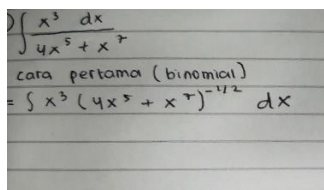 ) ∫ x³ dx / 4x⁵ + x⁷
cara pertama (binomial)
= ∫ x³ (4x⁵ + x⁷)⁻¹/² dx